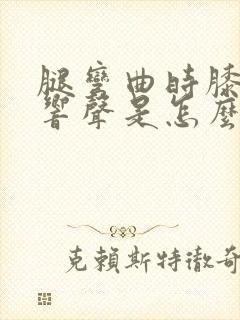 腿彎曲時膝
響聲是怎麼
克賴斯特徹奇